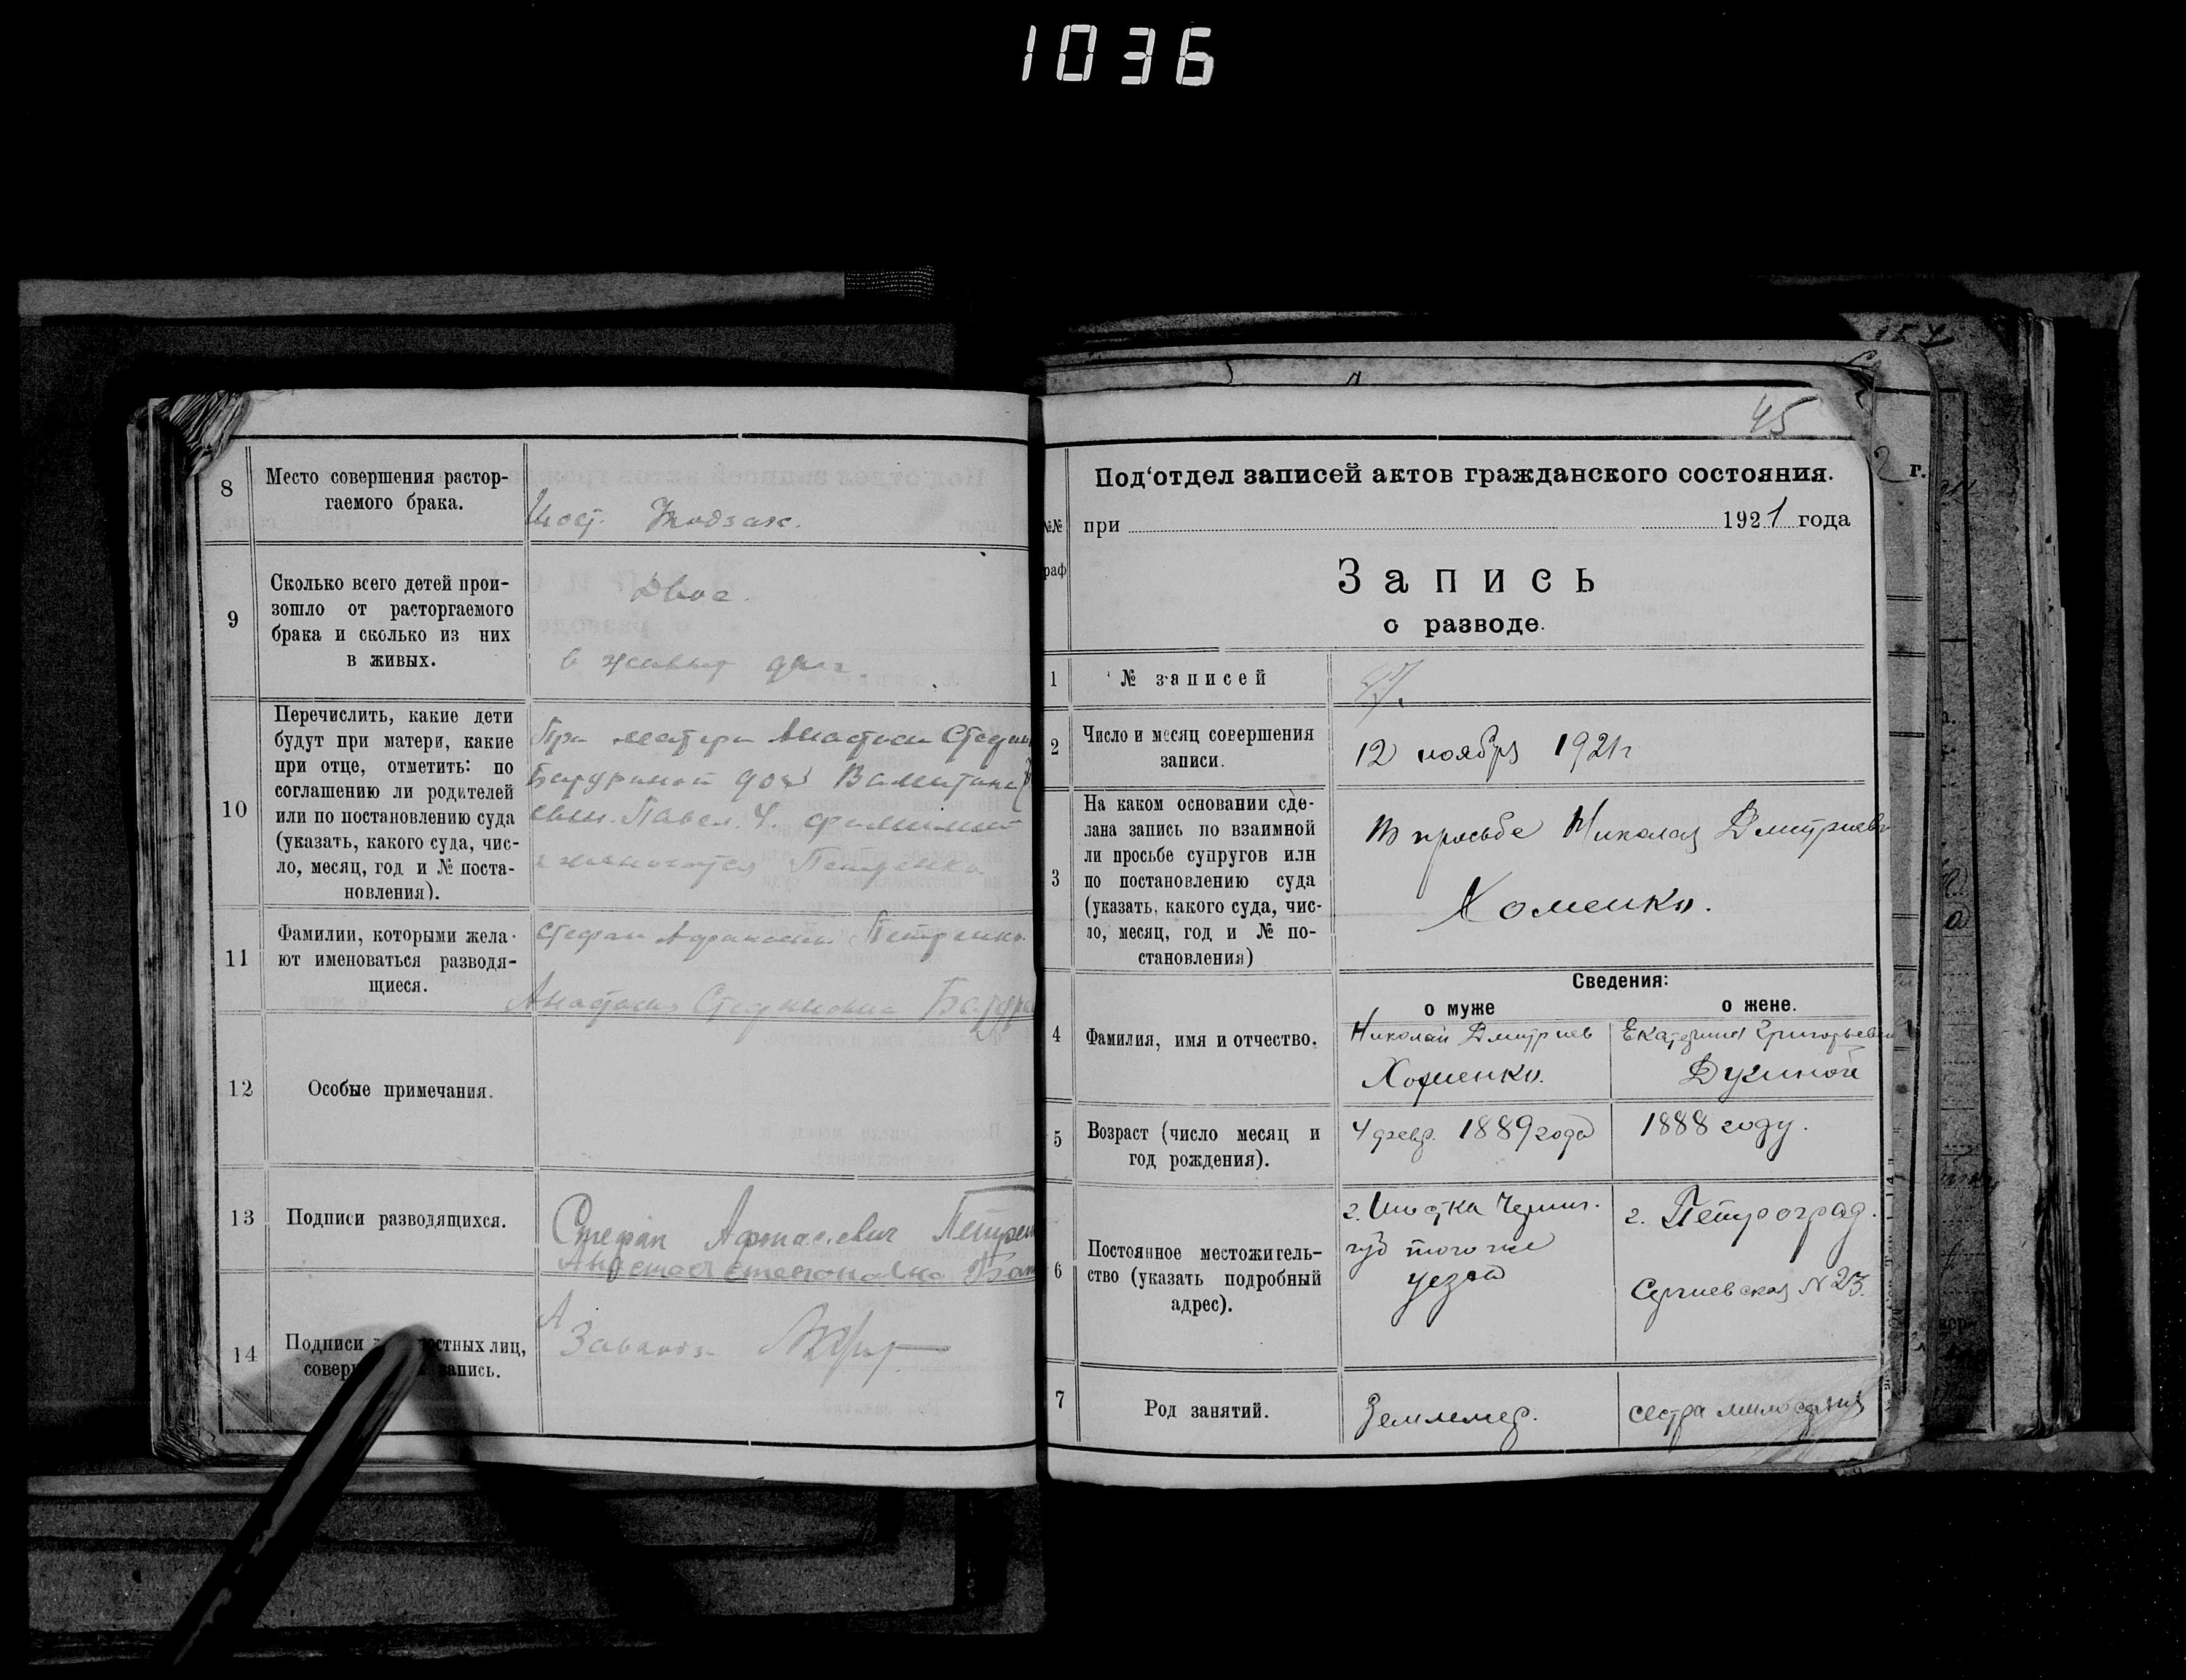 1036
8
Место совершения растор-
гаемого брака.
Шост. Зага.
9
Сколько всего детей прои-
зошло от расторгаемого
брака и сколько из них
в живых.
Двое.
в живых двое
10
Перечислить, какие дети
будут при матери, какие
при отце, отметить: по
соглашению ли родителей
или по постановлению суда
(указать, какого суда, чис-
ло, месяц, год и № поста-
новления).
При матери Анастасии
Батуриной Валентина
Павел. фамилией
Петренко
11
Фамилии, которыми жела-
ют именоваться разводя-
щиеся.
Стефан Афанасьев Петренко
Анастасия Степановна
12
Особые примечания.
13
Подписи разводящихся.
Стефан Афанасиевич
Анастасия Степановна
14
Подписи стных лиц,
совер запись.
Завподз.
45
Под'отдел записей актов гражданского состояния.
№№
раф
при 1921 года
Запись
о разводе.
1
№ записей
47.
2
Число и месяц совершения
записи.
12 ноября 1921 г
3
На каком основании сде-
лана запись по взаимной
ли просьбе супругов или
по постановлению суда
(указать, какого суда, чис-
ло, месяц, год и № по-
становления)
По просьбе Николая Дмитриев
Хоменко.
Сведения:
о муже
о жене.
4
Фамилия, имя и отчество.
Николай Дмитриев
Хоменко.
Екатерина Григорьевн
5
Возраст (число месяц и
год рождения).
4 февр. 1889 года
1888 году.
6
Постоянное местожитель-
ство (указать подробный
адрес).
г. Шостка Черниг.
губ того же
уезда
г. Петроград.
Сергиевская № 23.
7
Род занятий.
Землемер.
сестра милосердия
2 г.